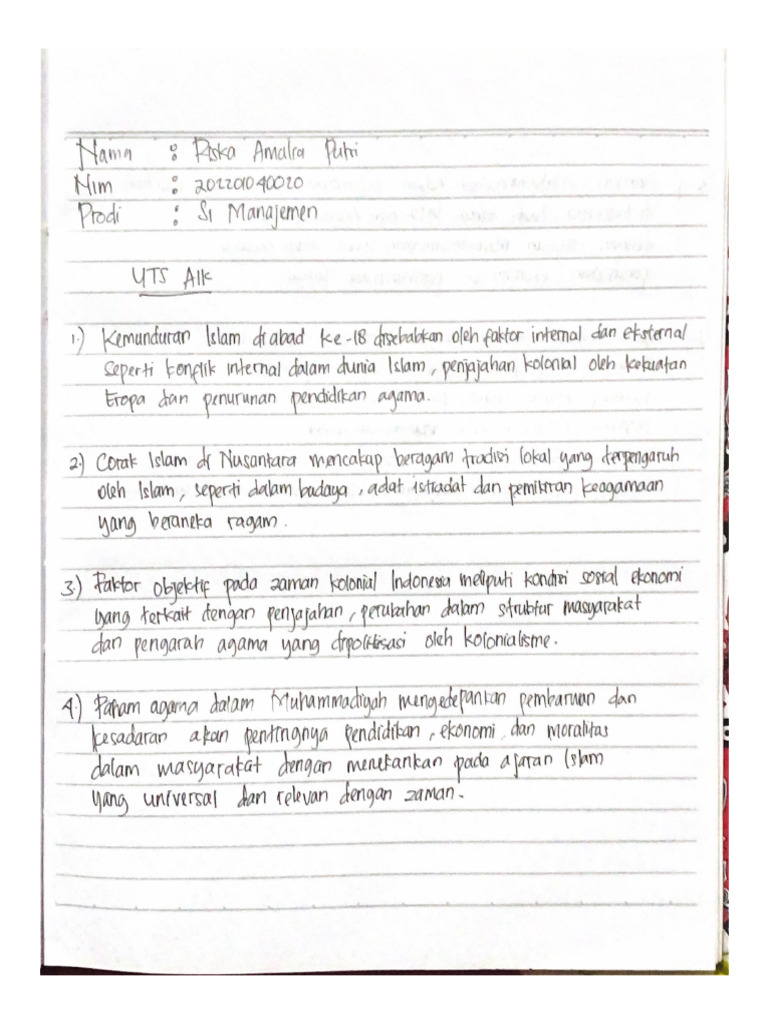 Nama : Riska Amalia Putri
Nim : 202201040020
Prodi : S1 Manajemen
UTS AIK
1.) Kemunduran Islam di abad ke-18 disebabkan oleh faktor internal dan eksternal
seperti konflik internal dalam dunia Islam, penjajahan kolonial oleh kekuatan
Eropa dan penurunan pendidikan agama.
2.) Corak Islam di Nusantara mencakup beragam tradisi lokal yang terpengaruh
oleh Islam, seperti dalam budaya, adat istiadat dan pemikiran keagamaan
yang beraneka ragam.
3.) Faktor objektif pada zaman kolonial Indonesia meliputi kondisi sosial ekonomi
yang terkait dengan penjajahan, perubahan dalam struktur masyarakat
dan pengarah agama yang dipolitisasi oleh kolonialisme.
4.) Paham agama dalam Muhammadiyah mengedepankan pembaruan dan
kesadaran akan pentingnya pendidikan, ekonomi, dan moralitas
dalam masyarakat dengan menekankan pada ajaran Islam
yang universal dan relevan dengan zaman.